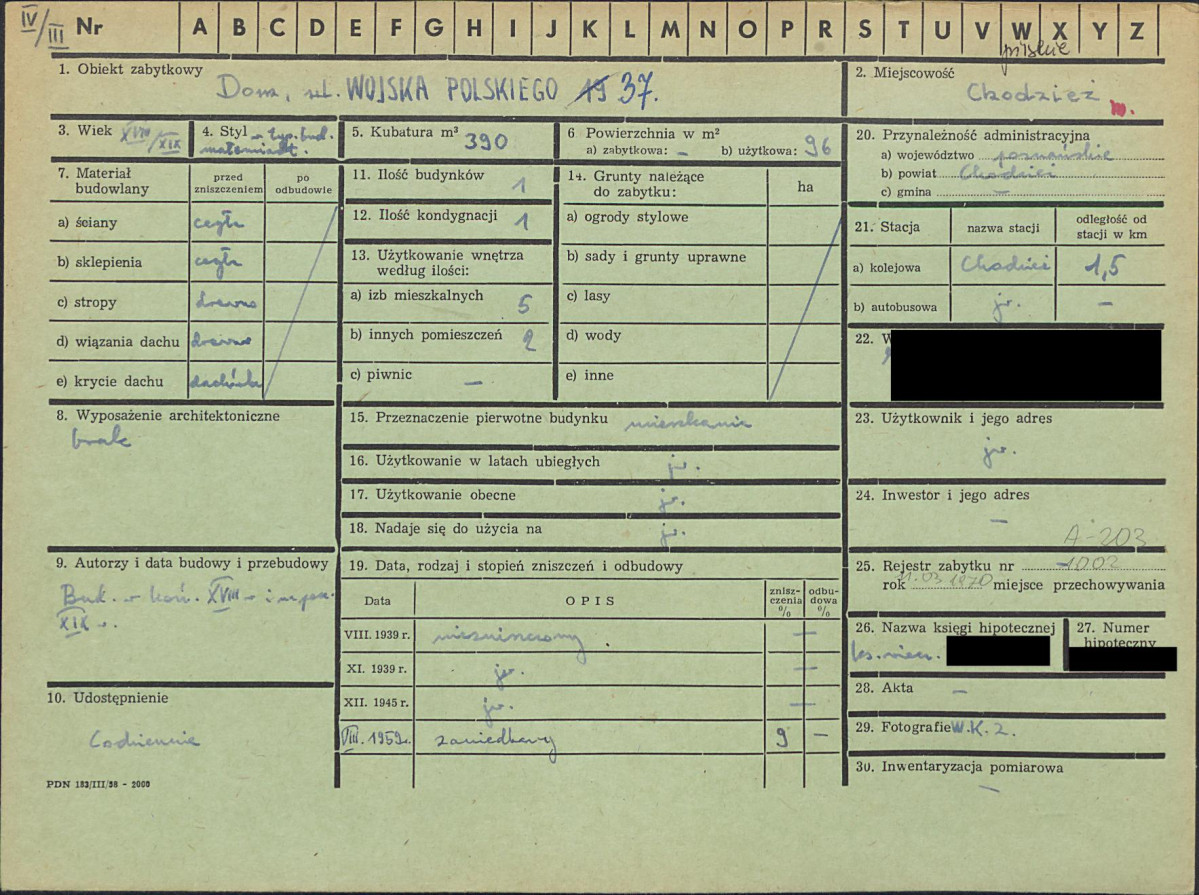 IV/III Nr A B C D E F G H I J K L M N O P R S T U V W X Y Z
pilskie
1. Obiekt zabytkowy Dom, ul. WOJSKA POLSKIEGO 37.
2. Miejscowość Chodzież m.
3. Wiek XVIII/XIX
4. Styl w typ. bud. małomiast.
5. Kubatura m³ 390
6 Powierzchnia w m²
a) zabytkowa: – b) użytkowa: 96
7. Materiał budowlany
przed zniszczeniem
po odbudowie
a) ściany cegła
b) sklepienia cegła
c) stropy drewno
d) wiązania dachu drewno
e) krycie dachu dachówka
8. Wyposażenie architektoniczne
brak
9. Autorzy i data budowy i przebudowy
Bud. w koń. XVIII w i w pocz.
XIX w.
10. Udostępnienie
Codziennie
PDN 183/III/58 - 2000
11. Ilość budynków 1
12. Ilość kondygnacji 1
13. Użytkowanie wnętrza
według ilości:
a) izb mieszkalnych 5
b) innych pomieszczeń 2
c) piwnic –
14. Grunty należące
do zabytku:
ha
a) ogrody stylowe
b) sady i grunty uprawne
c) lasy
d) wody
e) inne
15. Przeznaczenie pierwotne budynku mieszkanie
16. Użytkowanie w latach ubiegłych jw.
17. Użytkowanie obecne jw.
18. Nadaje się do użycia na jw.
19. Data, rodzaj i stopień zniszczeń i odbudowy
Data
OPIS
znisz-czenia %
odbu-dowa %
VIII. 1939 r. niezniszczony –
XI. 1939 r. jw. –
XII. 1945 r. jw. –
VIII. 1959 r. zaniedbany 9 –
20. Przynależność administracyjna
a) województwo poznańskie
b) powiat Chodzież
c) gmina –
21. Stacja
nazwa stacji
odległość od stacji w km
a) kolejowa Chodzież 1,5
b) autobusowa jw. –
22. W
23. Użytkownik i jego adres
jw.
24. Inwestor i jego adres
–
A-203
25. Rejestr zabytku nr 1002
rok 31.03.1970 miejsce przechowywania
26. Nazwa księgi hipotecznej
ks. wiecz.
27. Numer
hipoteczny
28. Akta –
29. Fotografie W.K.2.
30. Inwentaryzacja pomiarowa
–